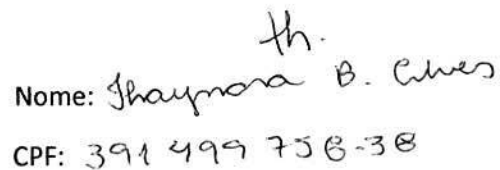 th.
Nome: Thaynara B. Alves
CPF: 391 499 758-38